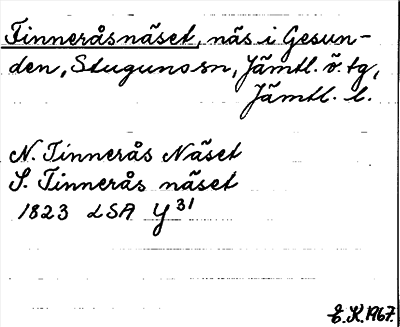 Finneråsnäset, näs i Gesun-
den, Stuguns sn, Jämtl. ö. tg,
Jämtl. l.
N. Finnerås Näset
S. Finnerås näset
1823 LSA Y31
E.K. 1967.